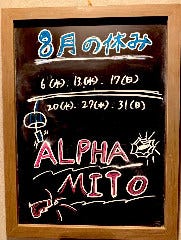 8月の休み
6(水).13(水).17(日)
20(水).27(水).31(日)
ALPHA
MITO